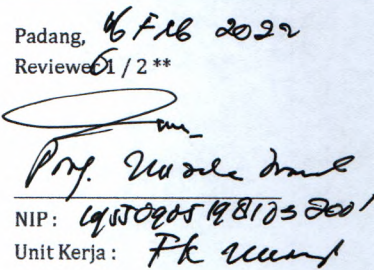 Padang, 16 Feb 2022
Reviewer 1 / 2 **
Prof.
NIP : 195509051981032001
Unit Kerja : FK Unand